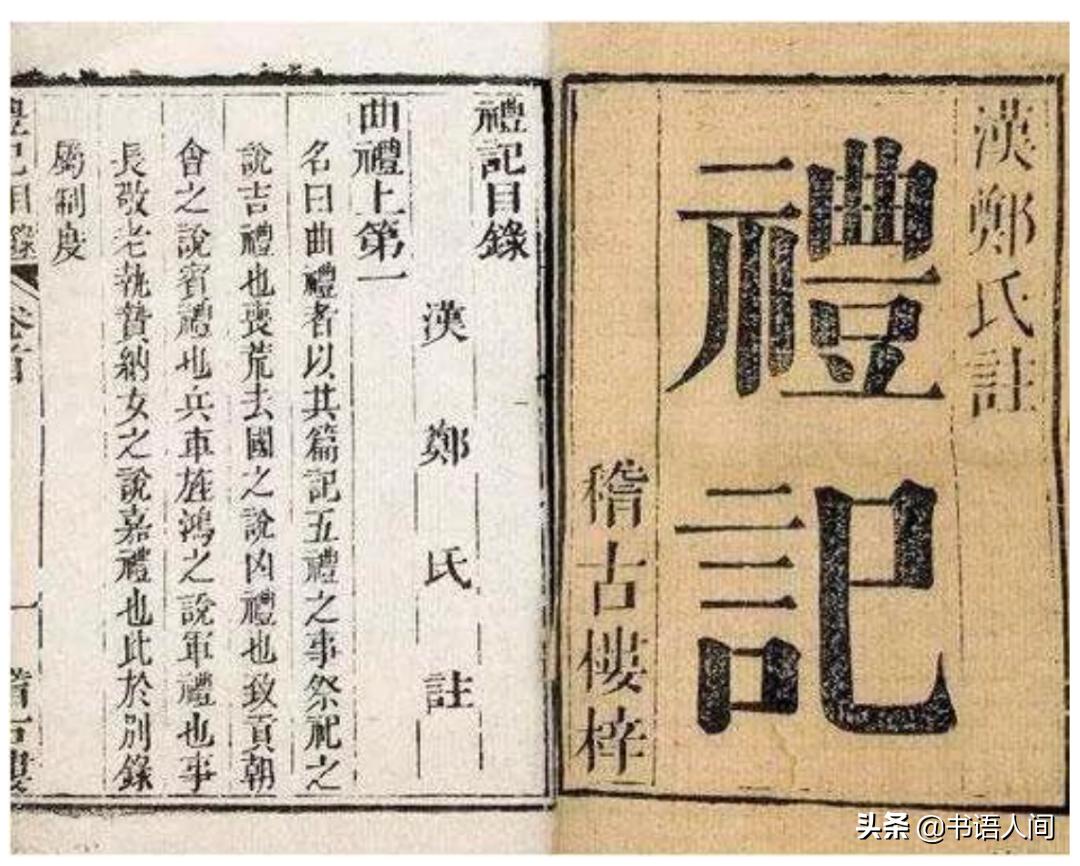 漢鄭氏註
禮記
稽古樓梓
禮記目錄
漢鄭氏註
曲禮上第一
名曰曲禮者以其篇記五禮之事祭祀之
說吉禮也喪荒去國之說凶禮也致貢朝
會之說賓禮也兵車旌鴻之說軍禮也事
長敬老執贄納女之說嘉禮也此於別錄
屬制度
禮記目錄
卷首
一
稽古樓
头条 @书语人间